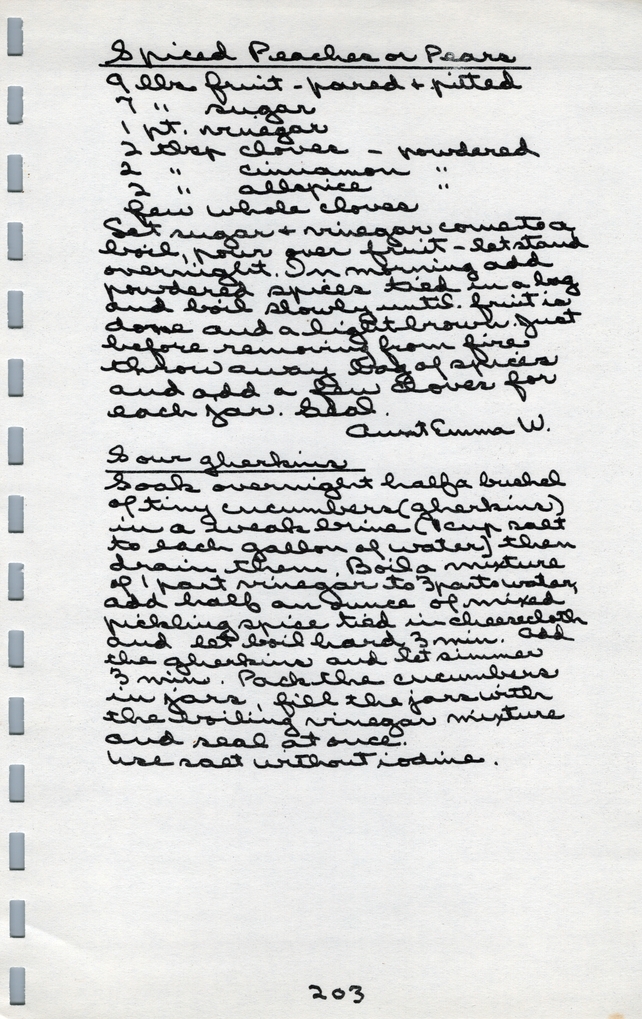 Spiced Peaches or Pears
9 lbs fruit - pared + pitted
7 " sugar
1 pt. vinegar
2 tbsp cloves - powdered
2 " cinnamon "
2 " allspice "
few whole cloves
Set sugar + vinegar come to a
boil, pour over fruit - let stand
overnight. In morning add
powdered spices tied in a bag
and boil slowly until fruit is
done and a light brown. Just
before removing from fire
throw away bag of spices
and add a few cloves for
each jar. Seal.
Aunt Emma W.
Sour gherkins
Soak overnight half a bushel
of tiny cucumbers (gherkins)
in a weak brine (1 cup salt
to each gallon of water) then
drain them. Boil a mixture
of 1 part vinegar to 3 parts water,
add half an ounce of mixed
pickling spice tied in cheesecloth
and let boil hard 3 min. Add
the gherkins and let simmer
3 min. Pack the cucumbers
in jars, fill the jars with
the boiling vinegar mixture
and seal at once.
Use salt without iodine.
203